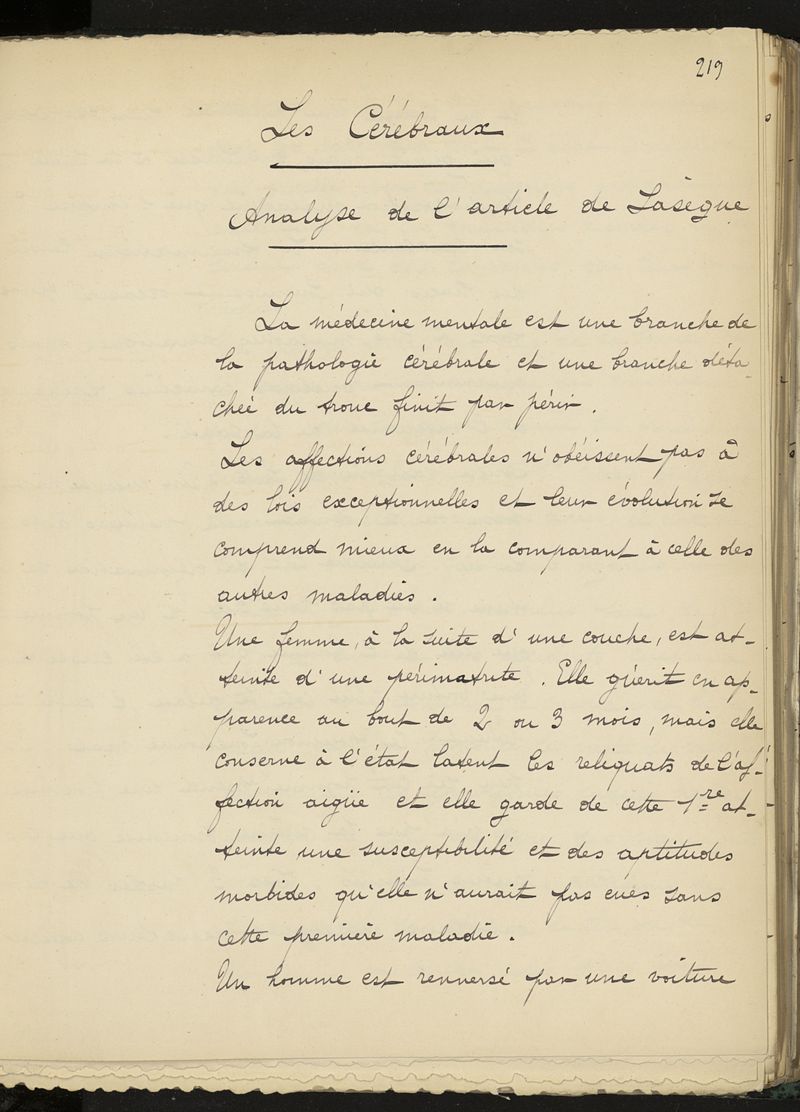 219
Les Cérébraux
Analyse de l'article de Lasègue
La médecine mentale est une branche de
la pathologie cérébrale et une branche déta-
chée du tronc finit par périr.
Les affections cérébrales n'obéissent pas à
des lois exceptionnelles et leur évolution se
comprend mieux en la comparant à celle des
autres maladies.
Une femme, à la suite d'une couche, est at-
teinte d'une périmatrite. Elle guérit en ap-
parence au bout de 2 ou 3 mois, mais elle
conserve à l'état latent les reliquats de l'af-
fection aigüe et elle garde de cette 1re at-
teinte une susceptibilité et des aptitudes
morbides qu'elle n'aurait pas eues sans
cette première maladie.
Un homme est renversé par une voiture